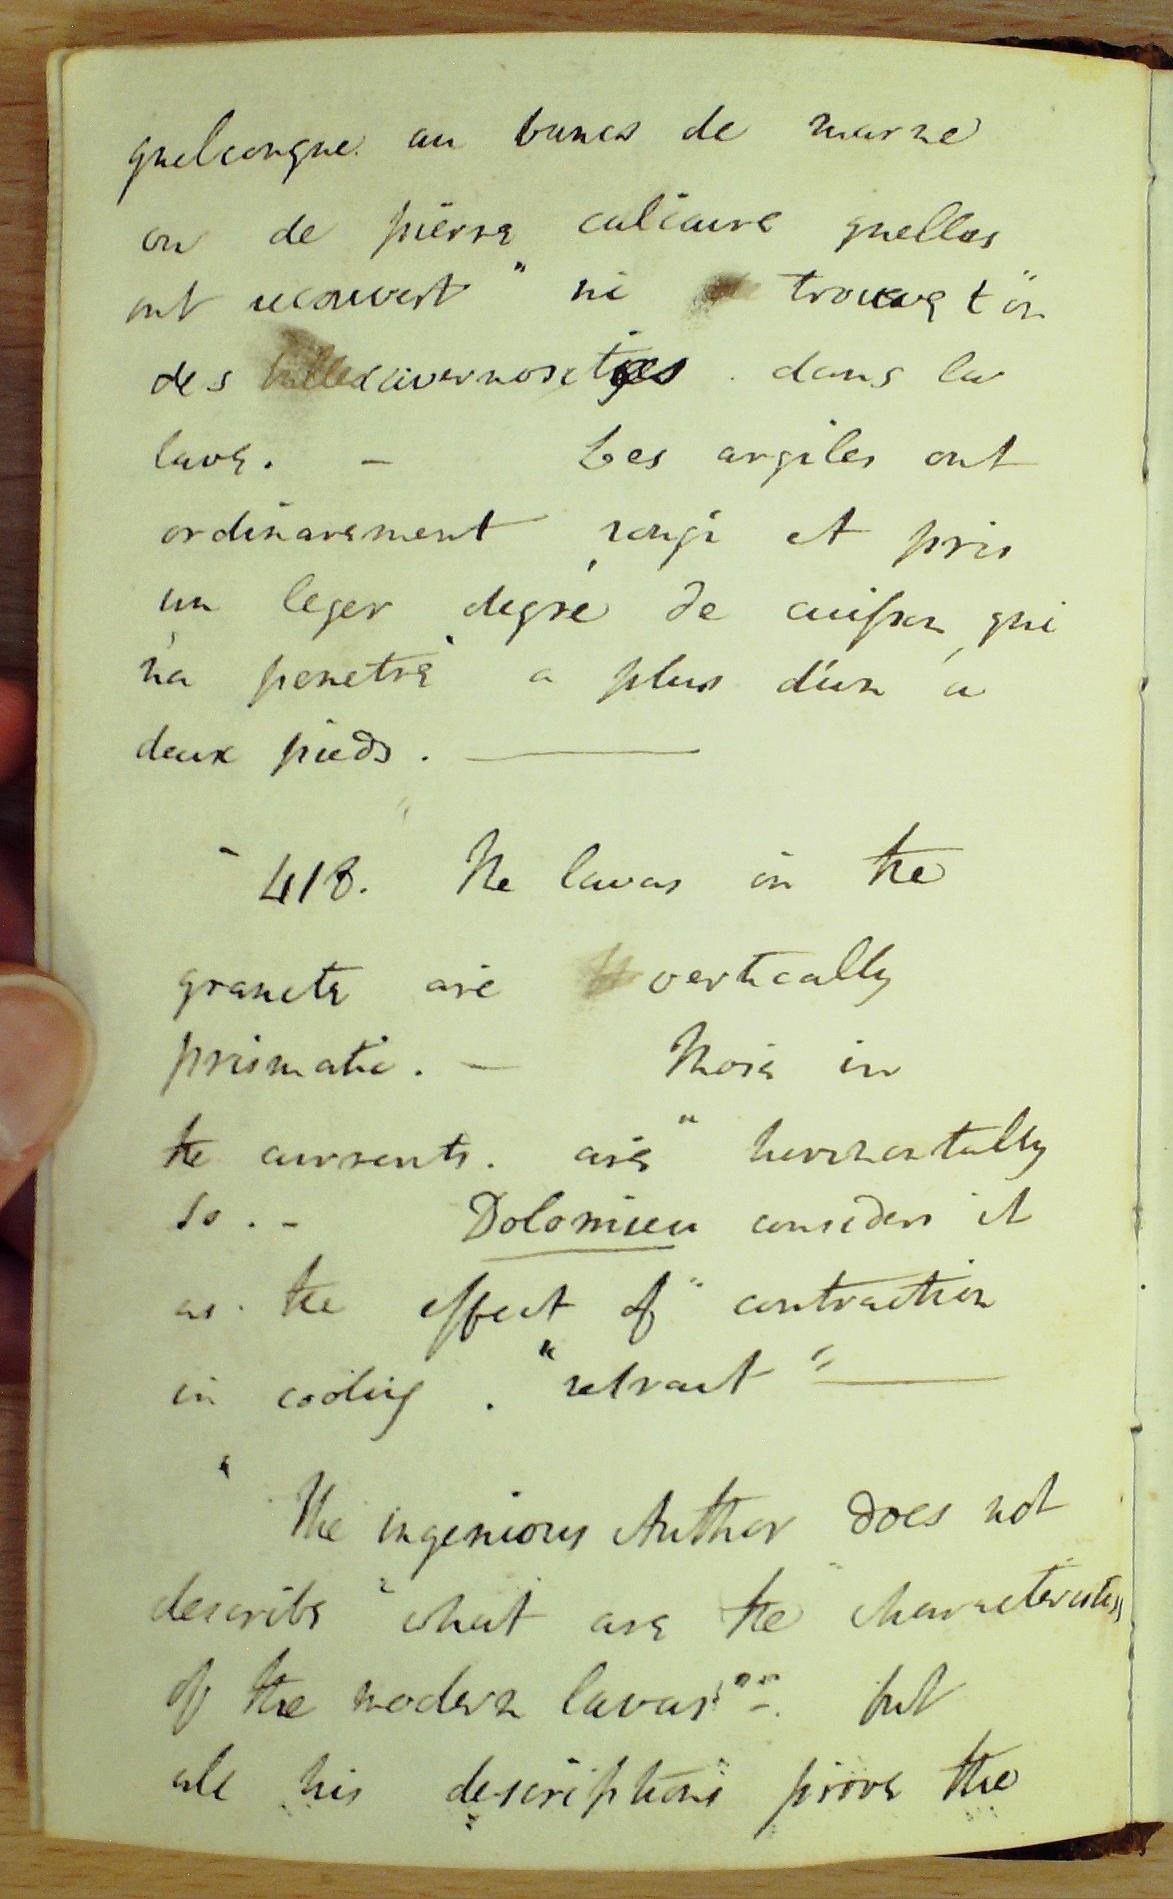 quelconque au bancs de marne
ou de pierre calcaire quelles
ont recouvert " ni trouve t'on
des cavernosities . dans la
lave. - Les argiles ont
ordinarement rougi et pris
un leger degré de cuisson qui
n'a penetré a plus d'un a
deux pieds. ———
- 418. The lavas in the
granite are vertically
prismatic. - Those in
the currents. are " horizontally
so. - Dolomieu considers it
as the effect of " contraction
in cooling. " retrait " ———
" The ingenious Author does not
describe " what are the characteristics
of the modern lavas " -. but
all his descriptions prove the